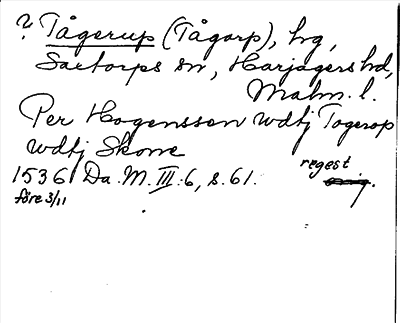 ? Tågerup (Tågarp), hg,
Saxtorps sn, Harjagers hd,
Malm. l.
Per Hogenssen wdtj Togerop
wdtj Skone
1536 Da. M. III:6, s. 61. regest
före 3/11